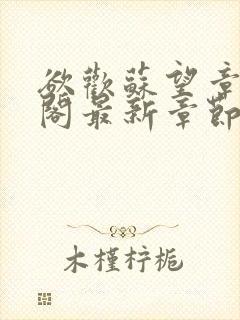 欲歡蘇望章
閣最新章節
木槿柠栀